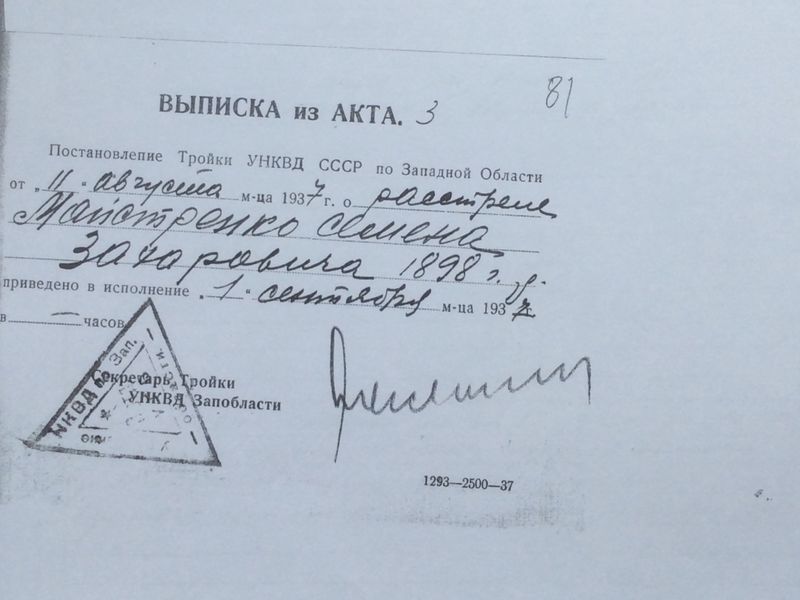 81
ВЫПИСКА из АКТА. 3
Постановление Тройки УНКВД СССР по Западной Области
от „11" августа м-ца 1937 г. о расстреле
Майстренко Семена
Захаровича 1898 г. р.
приведено в исполнение „1" сентября м-ца 1937 г.
в — часов
Секретарь Тройки
УНКВД Запобласти
УНКВД по Зап. области
1293—2500—37